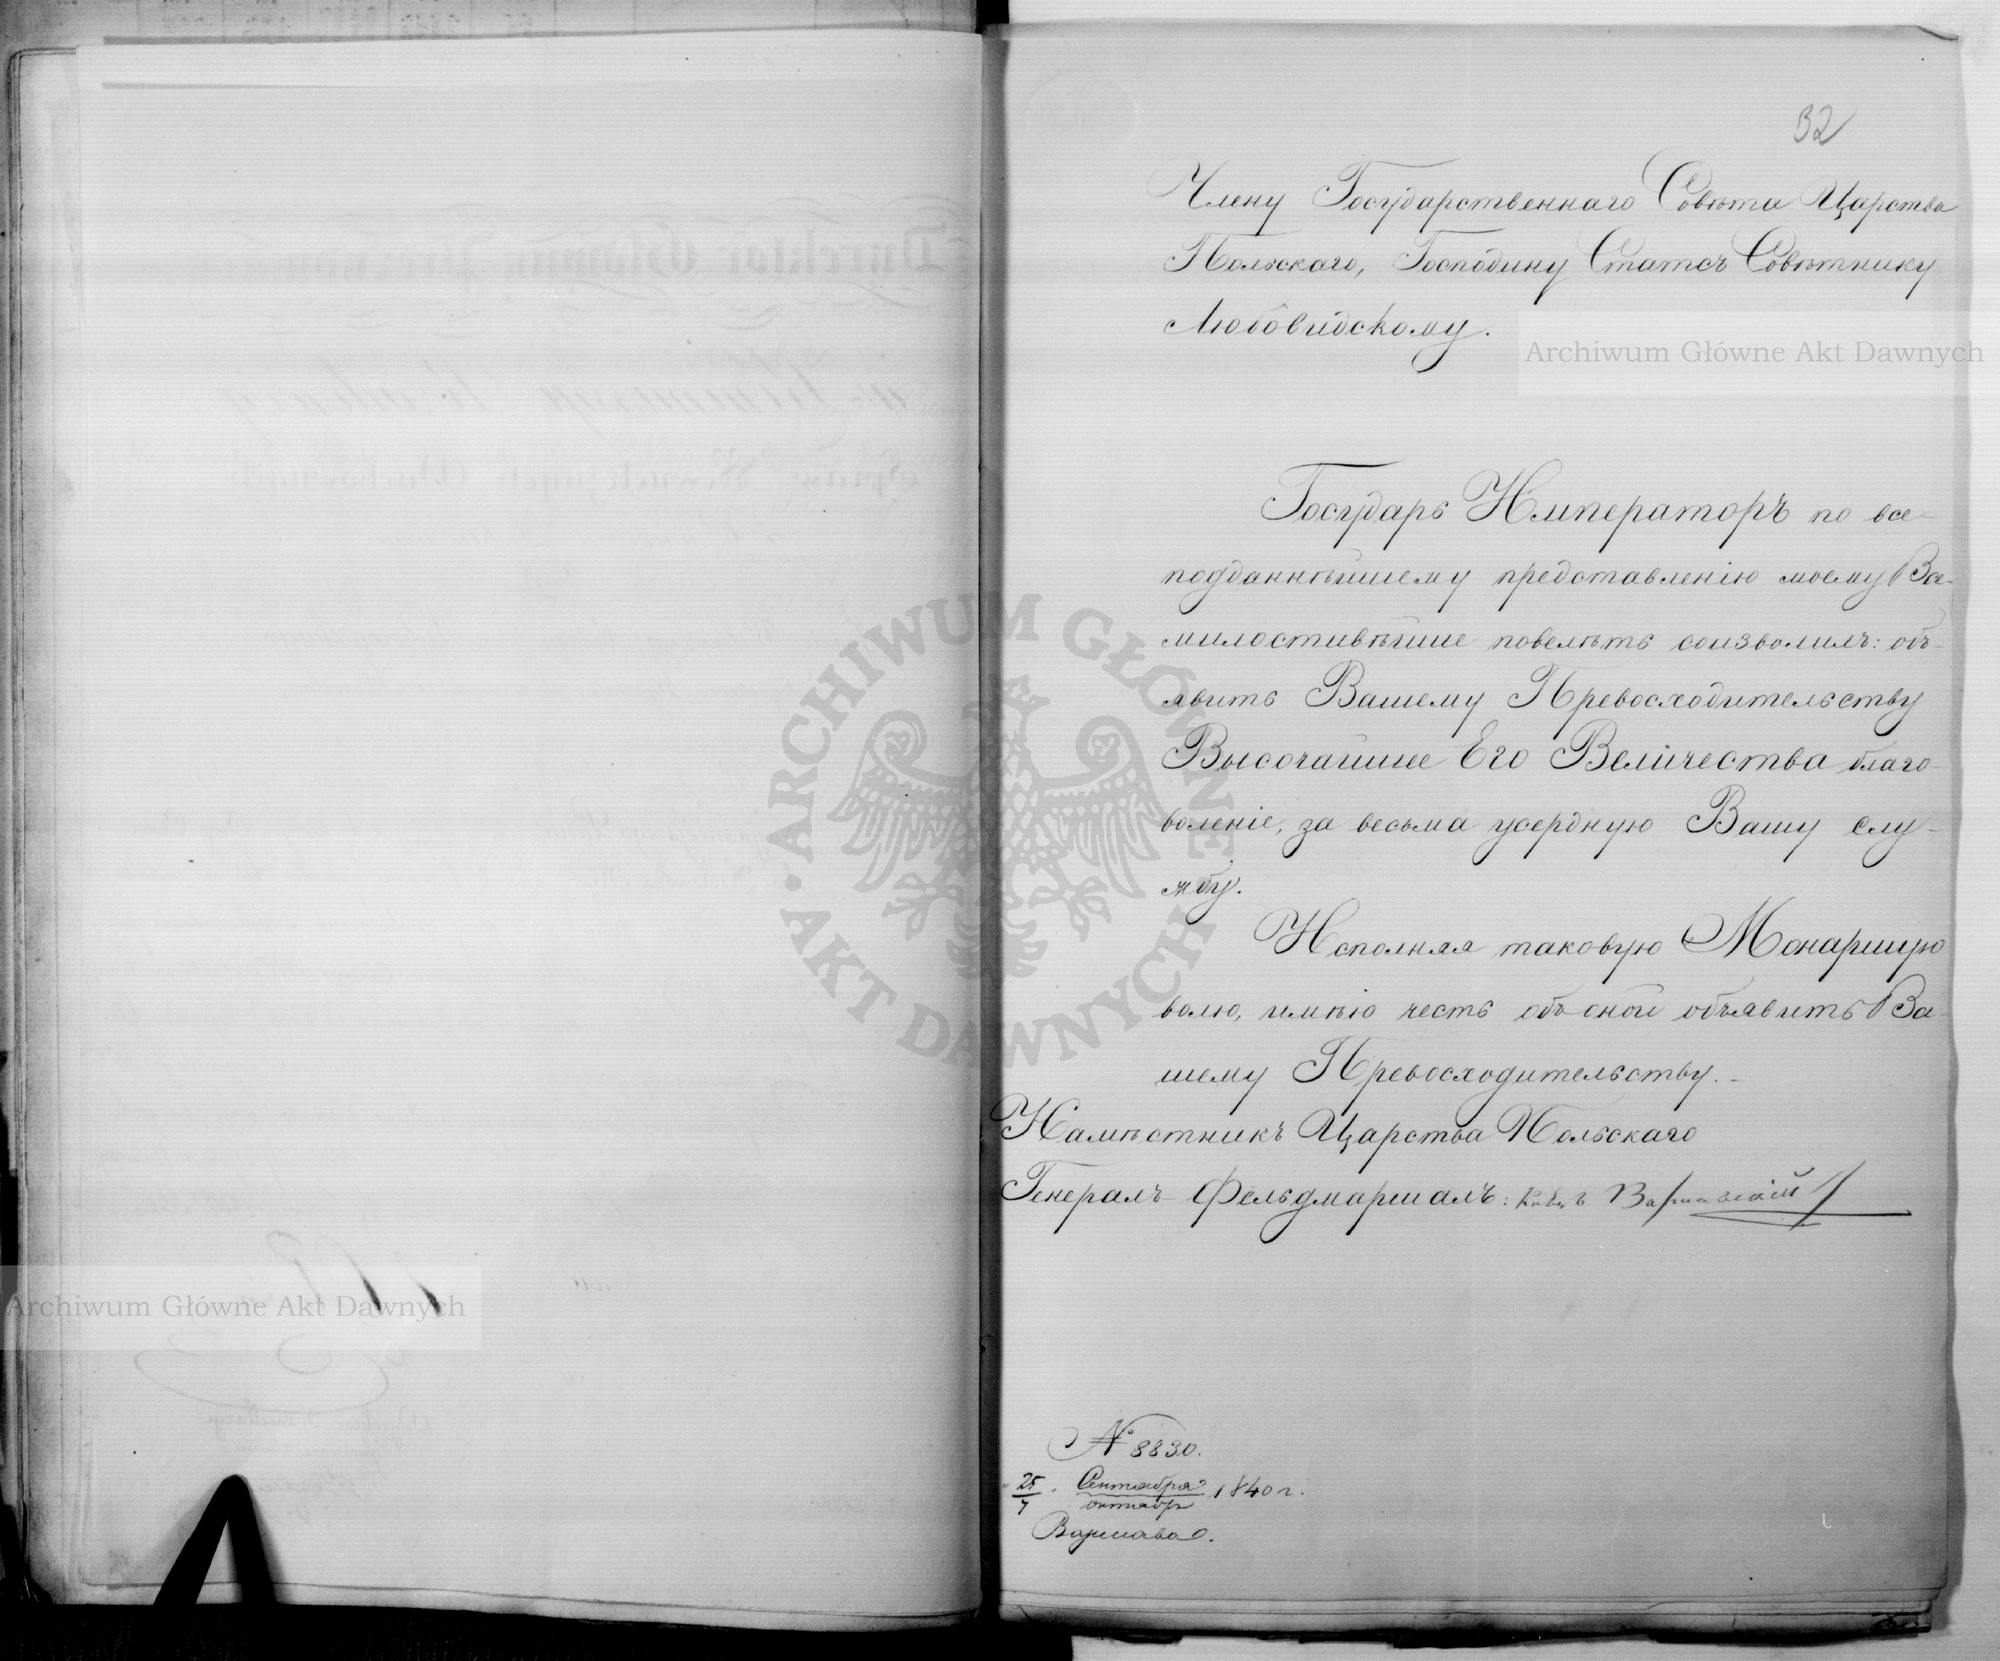 32
Члену Государственнаго Совѣта Царства
Польскаго, Господину Статсъ Совѣтнику
Любовидскому.
Archiwum Główne Akt Dawnych
Государь Императоръ по все-
подданнѣйшему представленію моему Все-
милостивѣйше повелѣть соизволилъ: объ-
явить Вашему Превосходительству
Высочайшее Его Величества благо-
воленіе, за весьма усердную Вашу слу-
жбу.
Исполняя таковую Монаршую
волю, имѣю честь объ оной объявить Ва-
шему Превосходительству.
Намѣстникъ Царства Польскаго
Генералъ-Фельдмаршалъ: Князь Варшавскій
ARCHIWUM GŁÓWNE AKT DAWNYCH
Archiwum Główne Akt Dawnych
№ 8830.
25/7 Сентября/октября 1840 г.
Варшава.